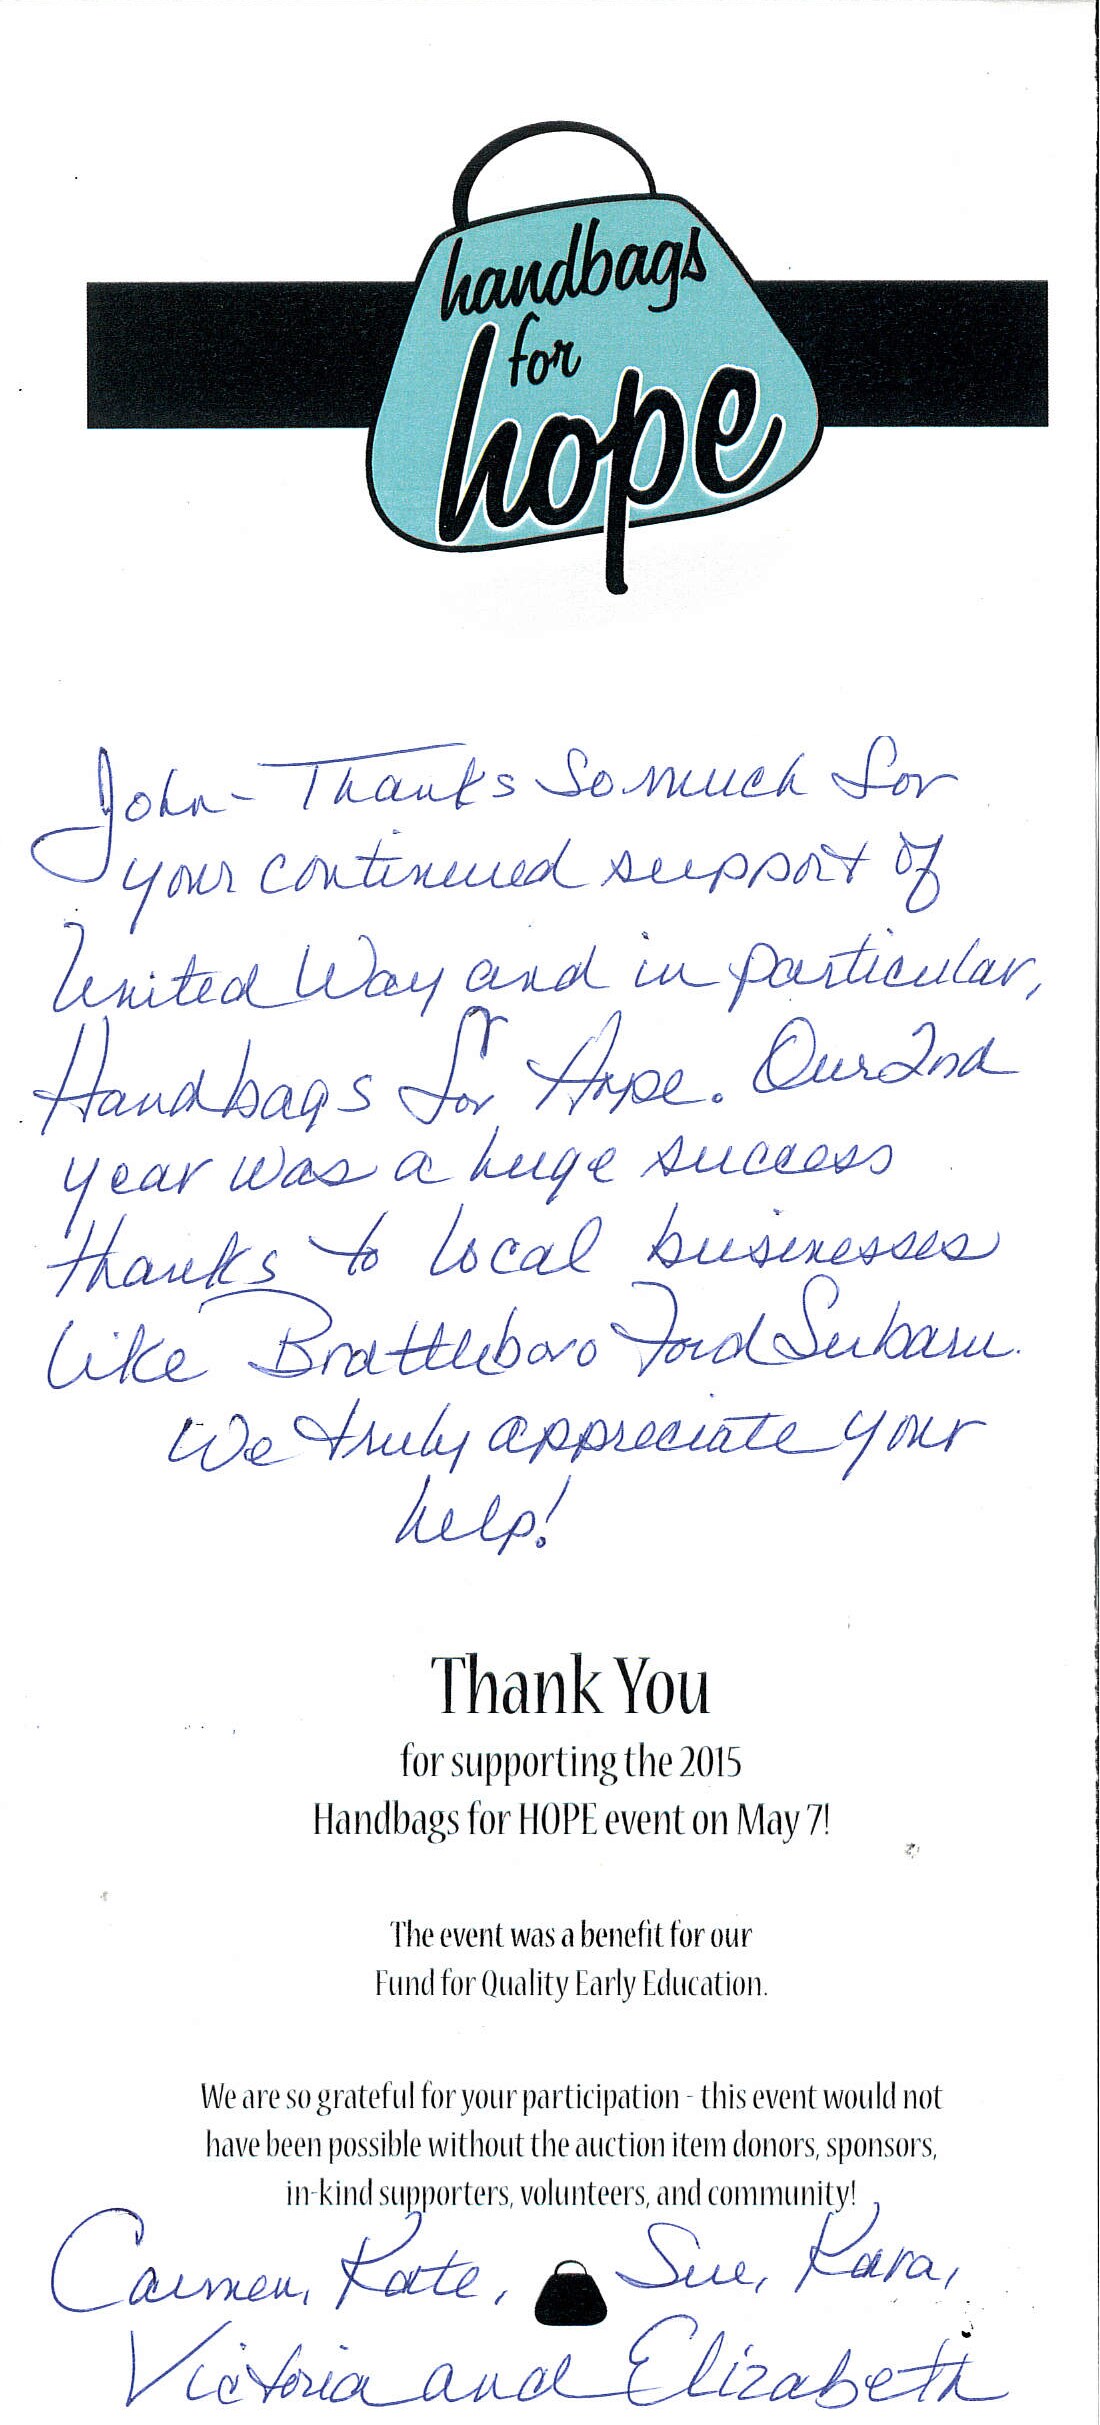 handbags
for
hope
John- Thanks so much for
your continued support of
United Way and in particular,
Handbags for Hope. Our 2nd
year was a huge success
thanks to local businesses
like Brattleboro Ford Subaru.
We truly appreciate your
help!
Thank You
for supporting the 2015
Handbags for HOPE event on May 7!
The event was a benefit for our
Fund for Quality Early Education.
We are so grateful for your participation - this event would not
have been possible without the auction item donors, sponsors,
in-kind supporters, volunteers, and community!
Carmen, Kate, Sue, Kara,
Victoria and Elizabeth